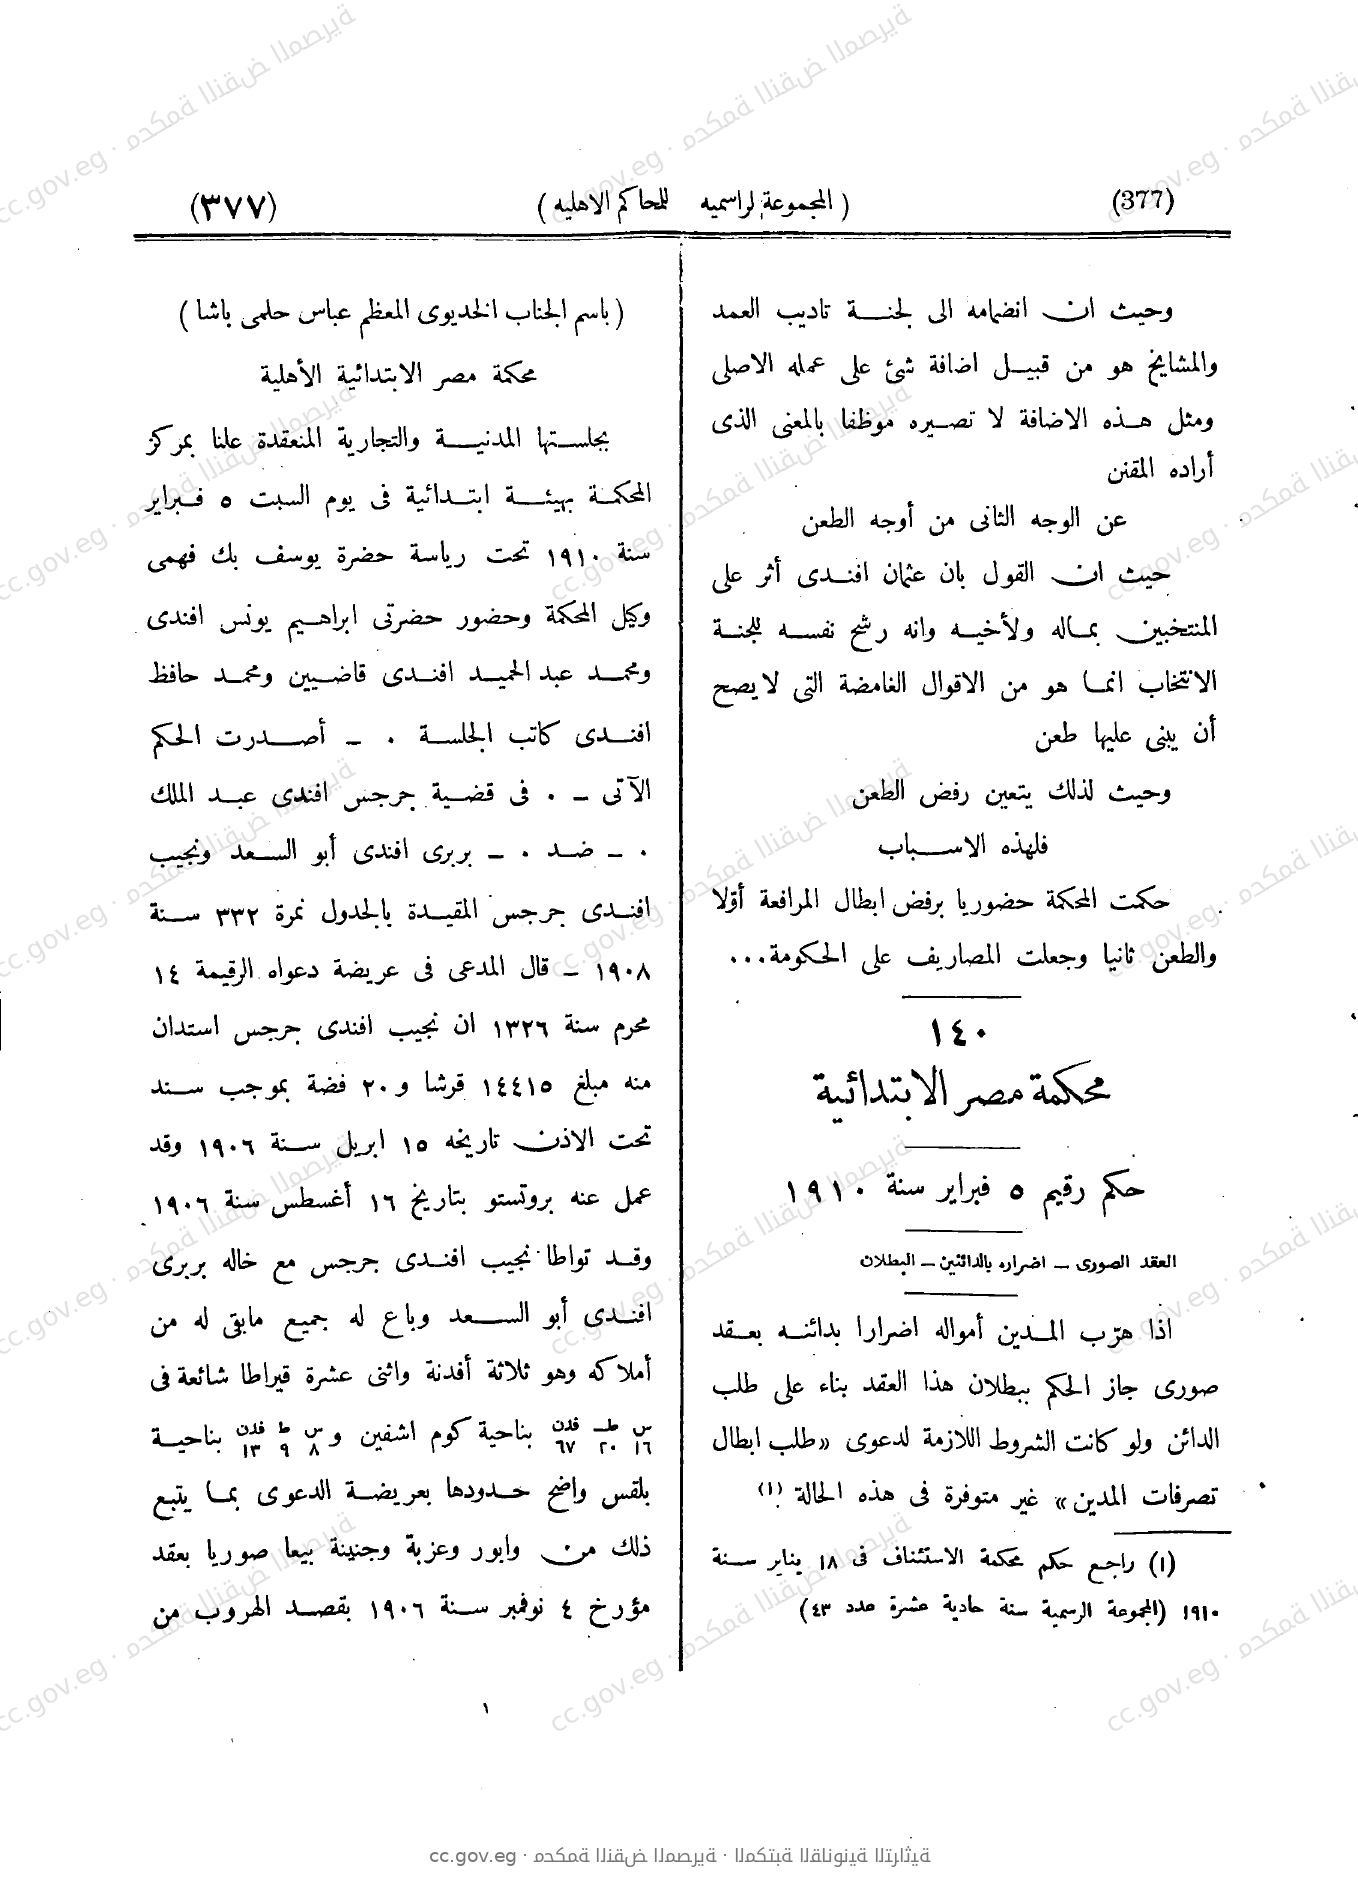 (377) ( المجموعة الراسميه للمحاكم الاهليه ) (٣٧٧)
وحيث ان انضمامه الى لجنة تاديب العمد
والمشايخ هو من قبيل اضافة شئ على عمله الاصلى
ومثل هذه الاضافة لا تصيره موظفا بالمعنى الذى
أراده المقنن
عن الوجه الثانى من أوجه الطعن
حيث ان القول بان عثمان افندى أثر على
المنتخبين بماله ولأخيه وانه رشح نفسه للجنة
الانتخاب انما هو من الاقوال الغامضة التى لا يصح
أن يبنى عليها طعن
وحيث لذلك يتعين رفض الطعن
فلهذه الاسباب
حكمت المحكمة حضوريا برفض ابطال المرافعة أوّلا
والطعن ثانيا وجعلت المصاريف على الحكومة...
١٤٠
محكمة مصر الابتدائية
حكم رقيم ٥ فبراير سنة ١٩١٠
العقد الصورى – اضراره بالدائنين – البطلان
اذا هرّب المدين أمواله اضرارا بدائنه بعقد
صورى جاز الحكم ببطلان هذا العقد بناء على طلب
الدائن ولو كانت الشروط اللازمة لدعوى «طلب ابطال
تصرفات المدين» غير متوفرة فى هذه الحالة (١)
(١) راجع حكم محكمة الاستئناف فى ١٨ يناير سنة
١٩١٠ (المجموعة الرسمية سنة حادية عشرة عدد ٤٣)
( باسم الجناب الخديوى المعظم عباس حلمى باشا )
محكمة مصر الابتدائية الأهلية
بجلستها المدنية والتجارية المنعقدة علنا بمركز
المحكمة بهيئة ابتدائية فى يوم السبت ٥ فبراير
سنة ١٩١٠ تحت رياسة حضرة يوسف بك فهمى
وكيل المحكمة وحضور حضرتى ابراهيم يونس افندى
ومحمد عبد الحميد افندى قاضيين ومحمد حافظ
افندى كاتب الجلسة ٠ – أصدرت الحكم
الآتى – ٠ فى قضية جرجس افندى عبد الملك
٠ – ضد ٠ – بربرى افندى أبو السعد ونجيب
افندى جرجس المقيدة بالجدول نمرة ٣٣٢ سنة
١٩٠٨ – قال المدعى فى عريضة دعواه الرقيمة ١٤
محرم سنة ١٣٢٦ ان نجيب افندى جرجس استدان
منه مبلغ ١٤٤١٥ قرشا و ٢٠ فضة بموجب سند
تحت الاذن تاريخه ١٥ ابريل سنة ١٩٠٦ وقد
عمل عنه بروتستو بتاريخ ١٦ أغسطس سنة ١٩٠٦
وقد تواطا نجيب افندى جرجس مع خاله بربرى
افندى أبو السعد وباع له جميع مابقى له من
أملاكه وهو ثلاثة أفدنة واثنى عشرة قيراطا شائعة فى
س ط فدن ١٦ ٢٠ ٦٧ بناحية كوم اشفين و س ط فدن ٨ ٩ ١٣ بناحية
بلقس واضح حدودها بعريضة الدعوى بما يتبع
ذلك من وابور وعزبة وجنينة بيعا صوريا بعقد
مؤرخ ٤ نوفمبر سنة ١٩٠٦ بقصد الهروب من
١
cc.gov.eg · محكمة النقض المصرية · المكتبة القانونية التراثية